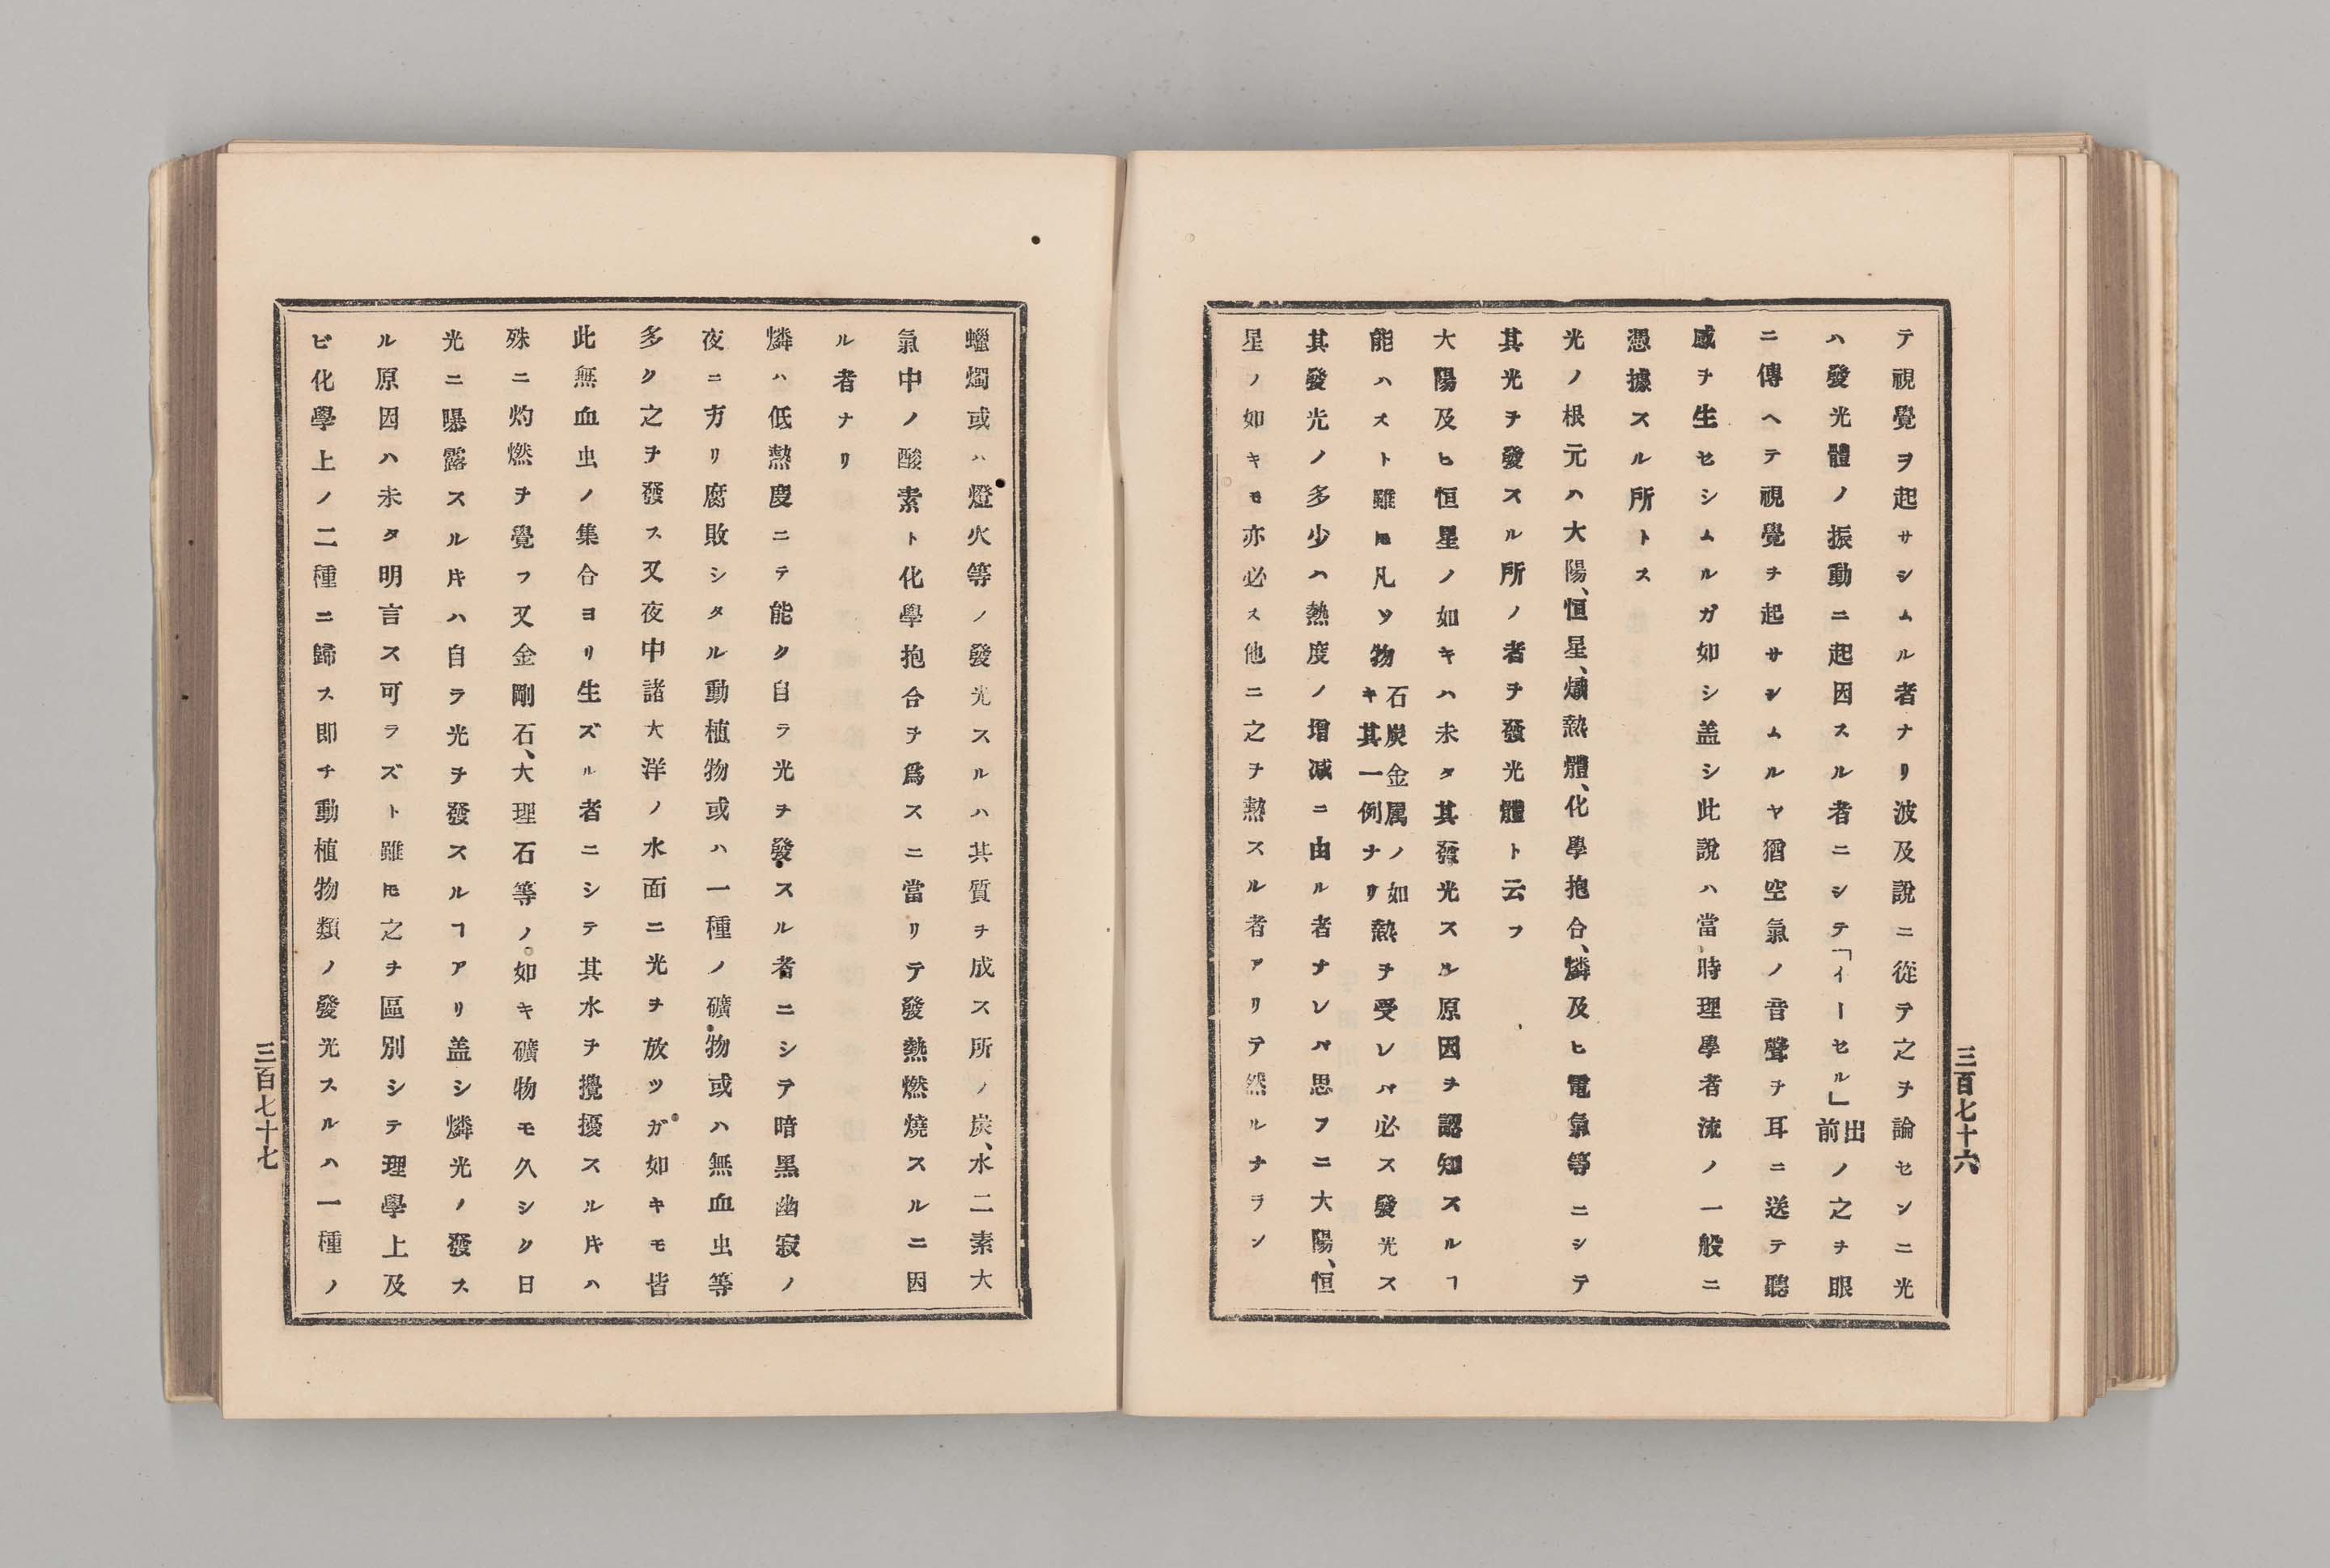 三百七十六
テ視覺ヲ起サシムル者ナリ波及説ニ從テ之ヲ論センニ光
ハ發光體ノ振動ニ起因スル者ニシテ「イーセル」前出ノ之ヲ眼
ニ傳ヘテ視覺ヲ起サシムルヤ猶空氣ノ音聲ヲ耳ニ送テ聽
感ヲ生セシムルガ如シ盖シ此説ハ當時理學者流ノ一般ニ
憑據スル所トス
光ノ根元ハ大陽、恒星、熾熱體、化學抱合、燐及ヒ電氣等ニシテ
其光ヲ發スル所ノ者ヲ發光體ト云フ
大陽及ヒ恒星ノ如キハ未タ其發光スル原因ヲ認知スルヿ
能ハスト雖𪜈凡ソ物石炭金属ノ如キ其一例ナリ熱ヲ受レハ必ス發光ス
其發光ノ多少ハ熱度ノ增减ニ由ル者ナレハ思フニ大陽、恒
星ノ如キモ亦必ス他ニ之ヲ熱スル者アリテ然ルナラン
蠟燭或ハ燈火等ノ發光スルハ其質ヲ成ス所ノ炭、水二素大
氣中ノ酸素ト化學抱合ヲ爲スニ當リテ發熱燃燒スルニ因
ル者ナリ
燐ハ低熱度ニテ能ク自ラ光ヲ發スル者ニシテ暗黑幽寂ノ
夜ニ方リ腐敗シタル動植物或ハ一種ノ礦物或ハ無血虫等
多ク之ヲ發ス又夜中諸大洋ノ水面ニ光ヲ放ツガ如キモ皆
此無血虫ノ集合ヨリ生ズル者ニシテ其水ヲ攪擾スル片ハ
殊ニ灼燃ヲ覺フ又金剛石、大理石等ノ如キ礦物モ久シク日
光ニ曝露スル片ハ自ラ光ヲ發スルヿアリ盖シ燐光ノ發ス
ル原因ハ未タ明言ス可ラズト雖𪜈之ヲ區別シテ理學上及
ビ化學上ノ二種ニ歸ス即チ動植物類ノ發光スルハ一種ノ
三百七十七